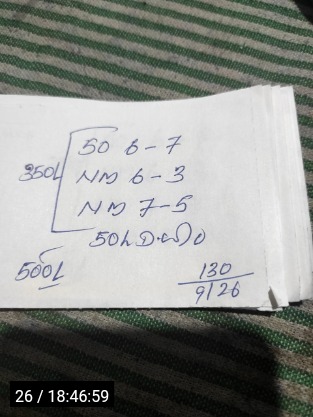 350L
50 6-7
NM 6-3
NM 7-5
50L
500L
130
9/26
26 / 18:46:59